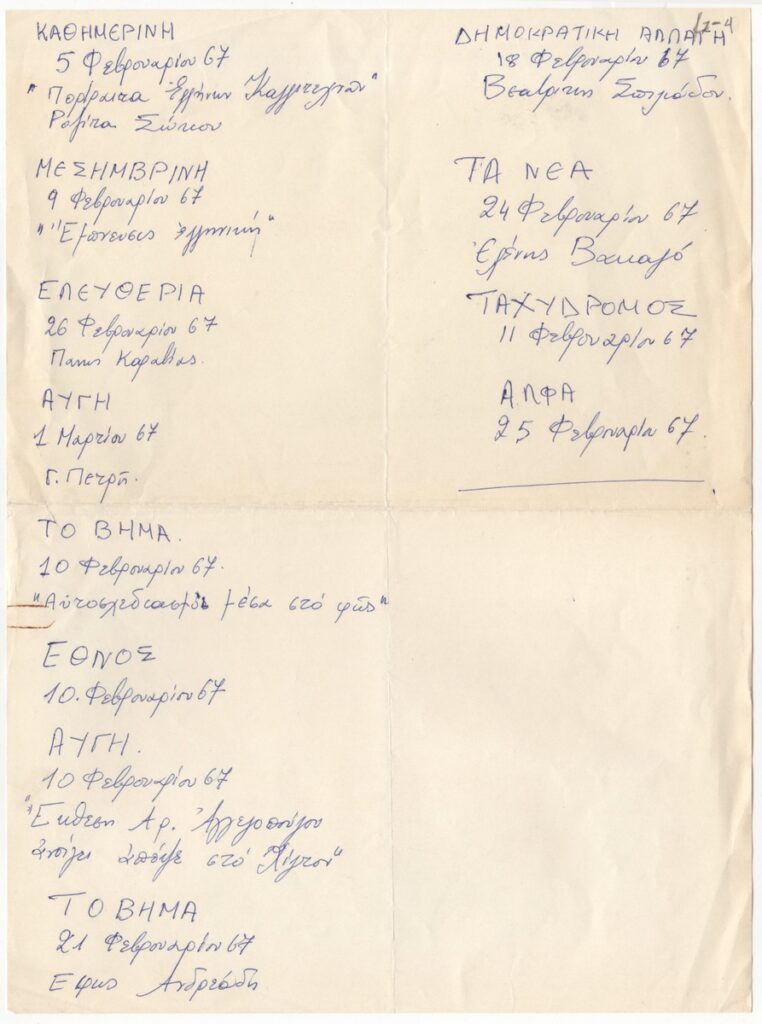 ΚΑΘΗΜΕΡΙΝΗ
5 Φεβρουαρίου 67
"Πορτραίτα Ἑλλήνων Καλλιτεχνῶν"
Ροζίτα Σώκου
ΜΕΣΗΜΒΡΙΝΗ
9 Φεβρουαρίου 67
"Ἔμπνευσις ἑλληνική"
ΕΛΕΥΘΕΡΙΑ
26 Φεβρουαρίου 67
Πάνης Καραβίας.
ΑΥΓΗ
1 Μαρτίου 67
Γ. Πετρῆ.
ΤΟ ΒΗΜΑ.
10 Φεβρουαρίου 67.
"Αὐτοσχεδιασμοὶ μέσα στό φῶς"
ΕΘΝΟΣ
10. Φεβρουαρίου 67
ΑΥΓΗ.
10 Φεβρουαρίου 67
"Ἔκθεση Αρ. Ἀγγελοπούλου
ἀνοίγει ἀπόψε στό Χίλτον"
ΤΟ ΒΗΜΑ
21 Φεβρουαρίου 67
Εφης Ἀνδρεάδη
ΔΗΜΟΚΡΑΤΙΚΗ ΑΛΛΑΓΗ
18 Φεβρουαρίου 67
Βεατρίκης Σπηλιάδου.
ΤΑ ΝΕΑ
24 Φεβρουαρίου 67
Ἑλένης Βακαλό
ΤΑΧΥΔΡΟΜΟΣ
11 Φεβρουαρίου 67
ΑΛΦΑ
25 Φεβρουαρίου 67.